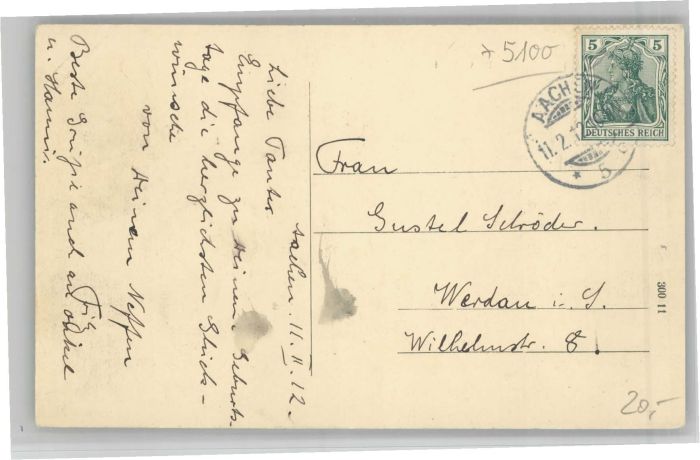 Aachen. 11. II. 12.
Liebe Tante!
Empfange zu Deinem Geburts-
tage die herzlichsten Glück-
wünsche
von Deinem Neffen
Fritz
Beste Grüsse auch an Onkel
u. Hanni.
* 5100
5 5
DEUTSCHES REICH
AACHEN
11.2.12
* 5
Frau
Gustel Schröder.
Werdau i. S.
Wilhelmstr. 8.
300 11
20,-